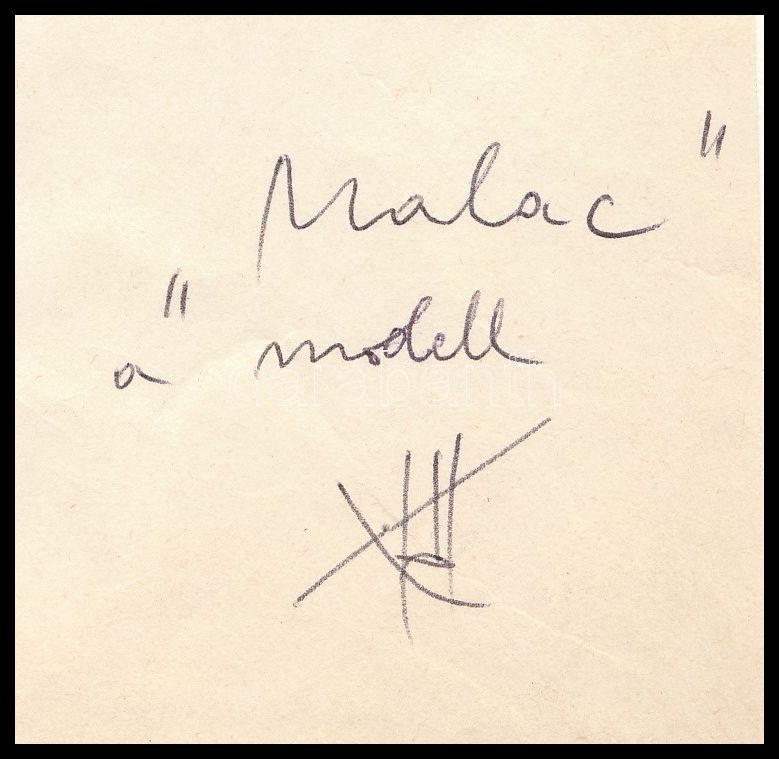 Malac"
a " modell
darabanth